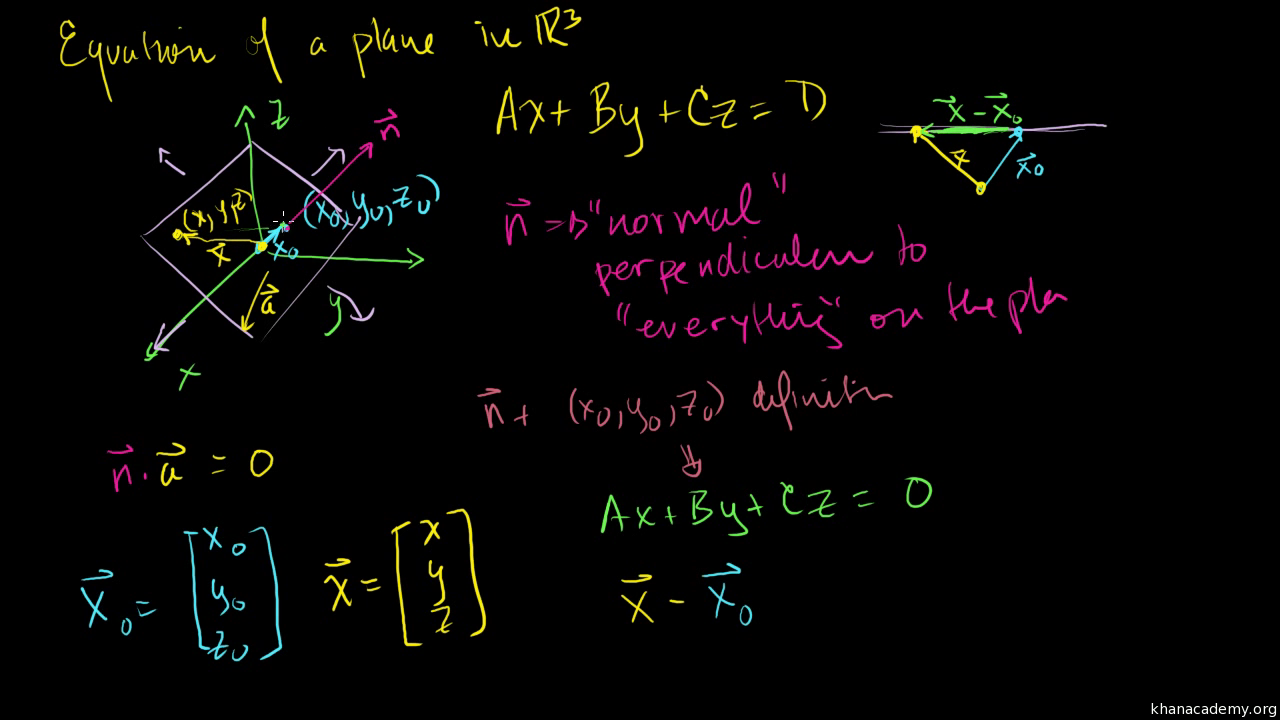 Equation of a plane in ℝ³
Ax + By + Cz = D
z
n⃗
(x, y, z)
(x₀, y₀, z₀)
x⃗
x₀
a⃗
y
x
x⃗ - x⃗₀
x
x⃗₀
n⃗ → "normal"
perpendicular to
"everything" on the pla
n⃗ + (x₀, y₀, z₀) definition
⇓
n⃗ · a⃗ = 0
Ax + By + Cz = D
x⃗₀ = [x₀ y₀ z₀]
x⃗ = [x y z]
x⃗ - x⃗₀
khanacademy.org